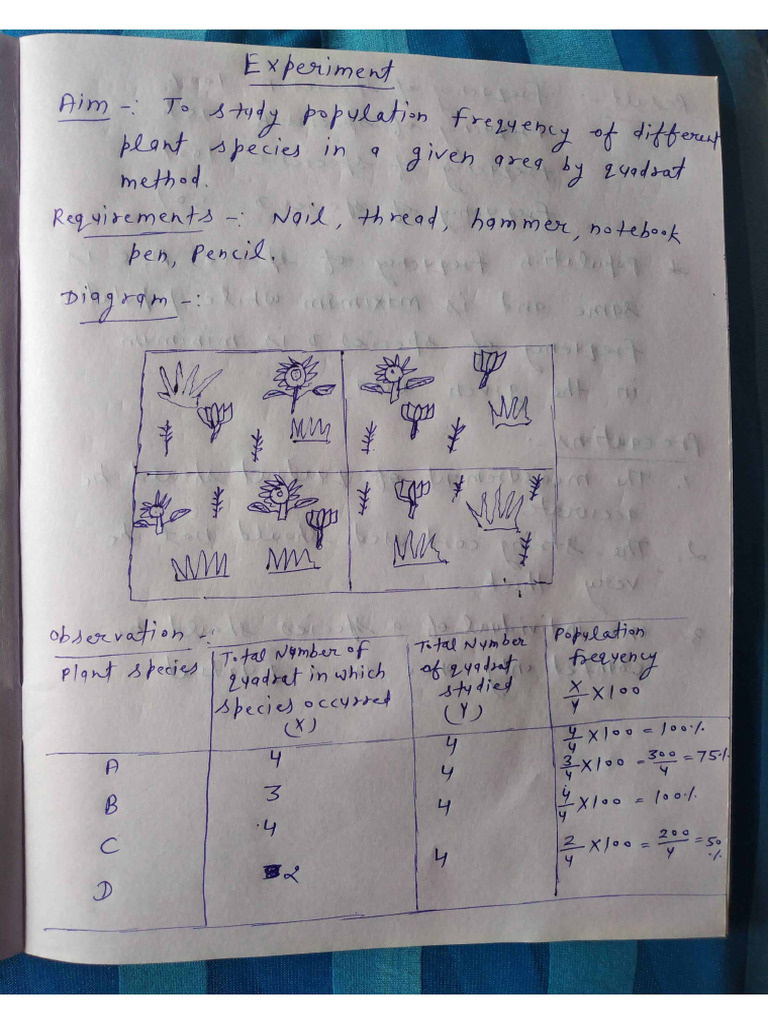 Experiment
Aim -: To study population frequency of different
plant species in a given area by quadrat
method.
Requirements -: Nail, thread, hammer, notebook
pen, Pencil.
Diagram -:
Observation -:
Plant species
Total Number of
quadrat in which
species occurred
(X)
Total Number
of quadrat
studied
(Y)
Population
frequency
X/Y X100
A 4 4 4/4 X100 = 100%
B 3 4 3/4 X100 = 300/4 = 75%
C 4 4 4/4 X100 = 100%
D 2 4 2/4 X100 = 200/4 = 50%